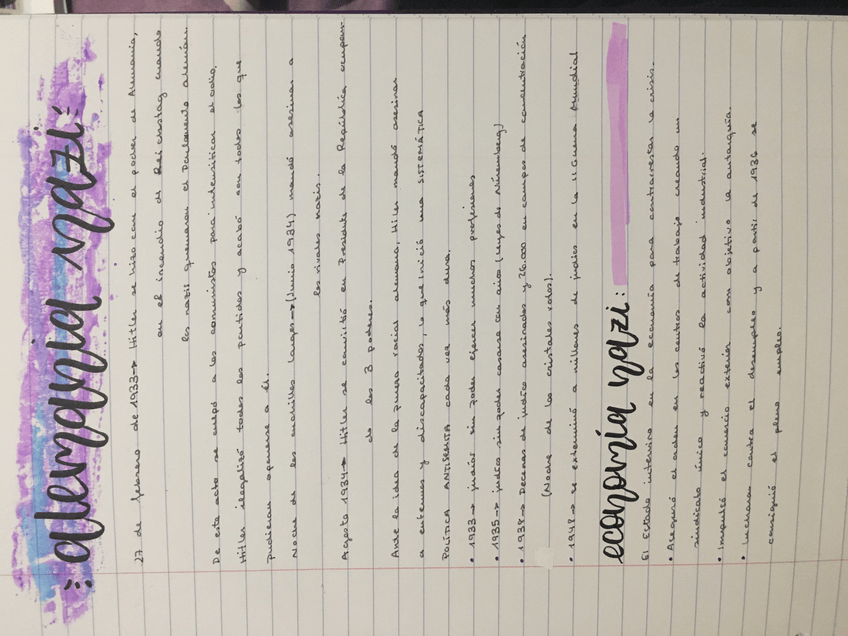 alemania nazi:
27 de febrero de 1933→ Hitler se hizo con el poder de Alemania,
en el incendio de Reichstag cuando
los nazis quemaron el Parlamento alemán.
De este acto se culpó a los comunistas para intensificar el odio.
Hitler ilegalizó todos los partidos y acabó con todos los que
pudieran oponerse a él.
Noche de los cuchillos largos→ (Junio 1934) mandó asesinar a
los rivales nazis.
Agosto 1934→ Hitler se convirtió en Presidente de la República
do los 3 poderes.
Ante la idea de la pureza racial alemana, Hitler mandó asesinar
a enfermos y discapacitados, lo que inició una SISTEMÁTICA
POLÍTICA ANTISEMITA cada vez más dura.
• 1933→ judíos sin poder ejercer muchas profesiones
• 1935→ judíos sin poder casarse con arios (Leyes de Núremberg)
• 1938→ Decenas de judíos asesinados y 26.000 en campos de concentración
(Noche de los cristales rotos).
• 1948→ se exterminó a millones de judíos en la II Guerra Mundial
economía nazi:
El Estado intervino en la economía para contrarrestar la crisis.
• Aseguró el orden en los centros de trabajo creando un
sindicato único y reactivó la actividad industrial.
• Impulsó el comercio exterior con objetivo la autarquía.
• Lucharon contra el desempleo y a partir de 1936 se
consiguió el pleno empleo.